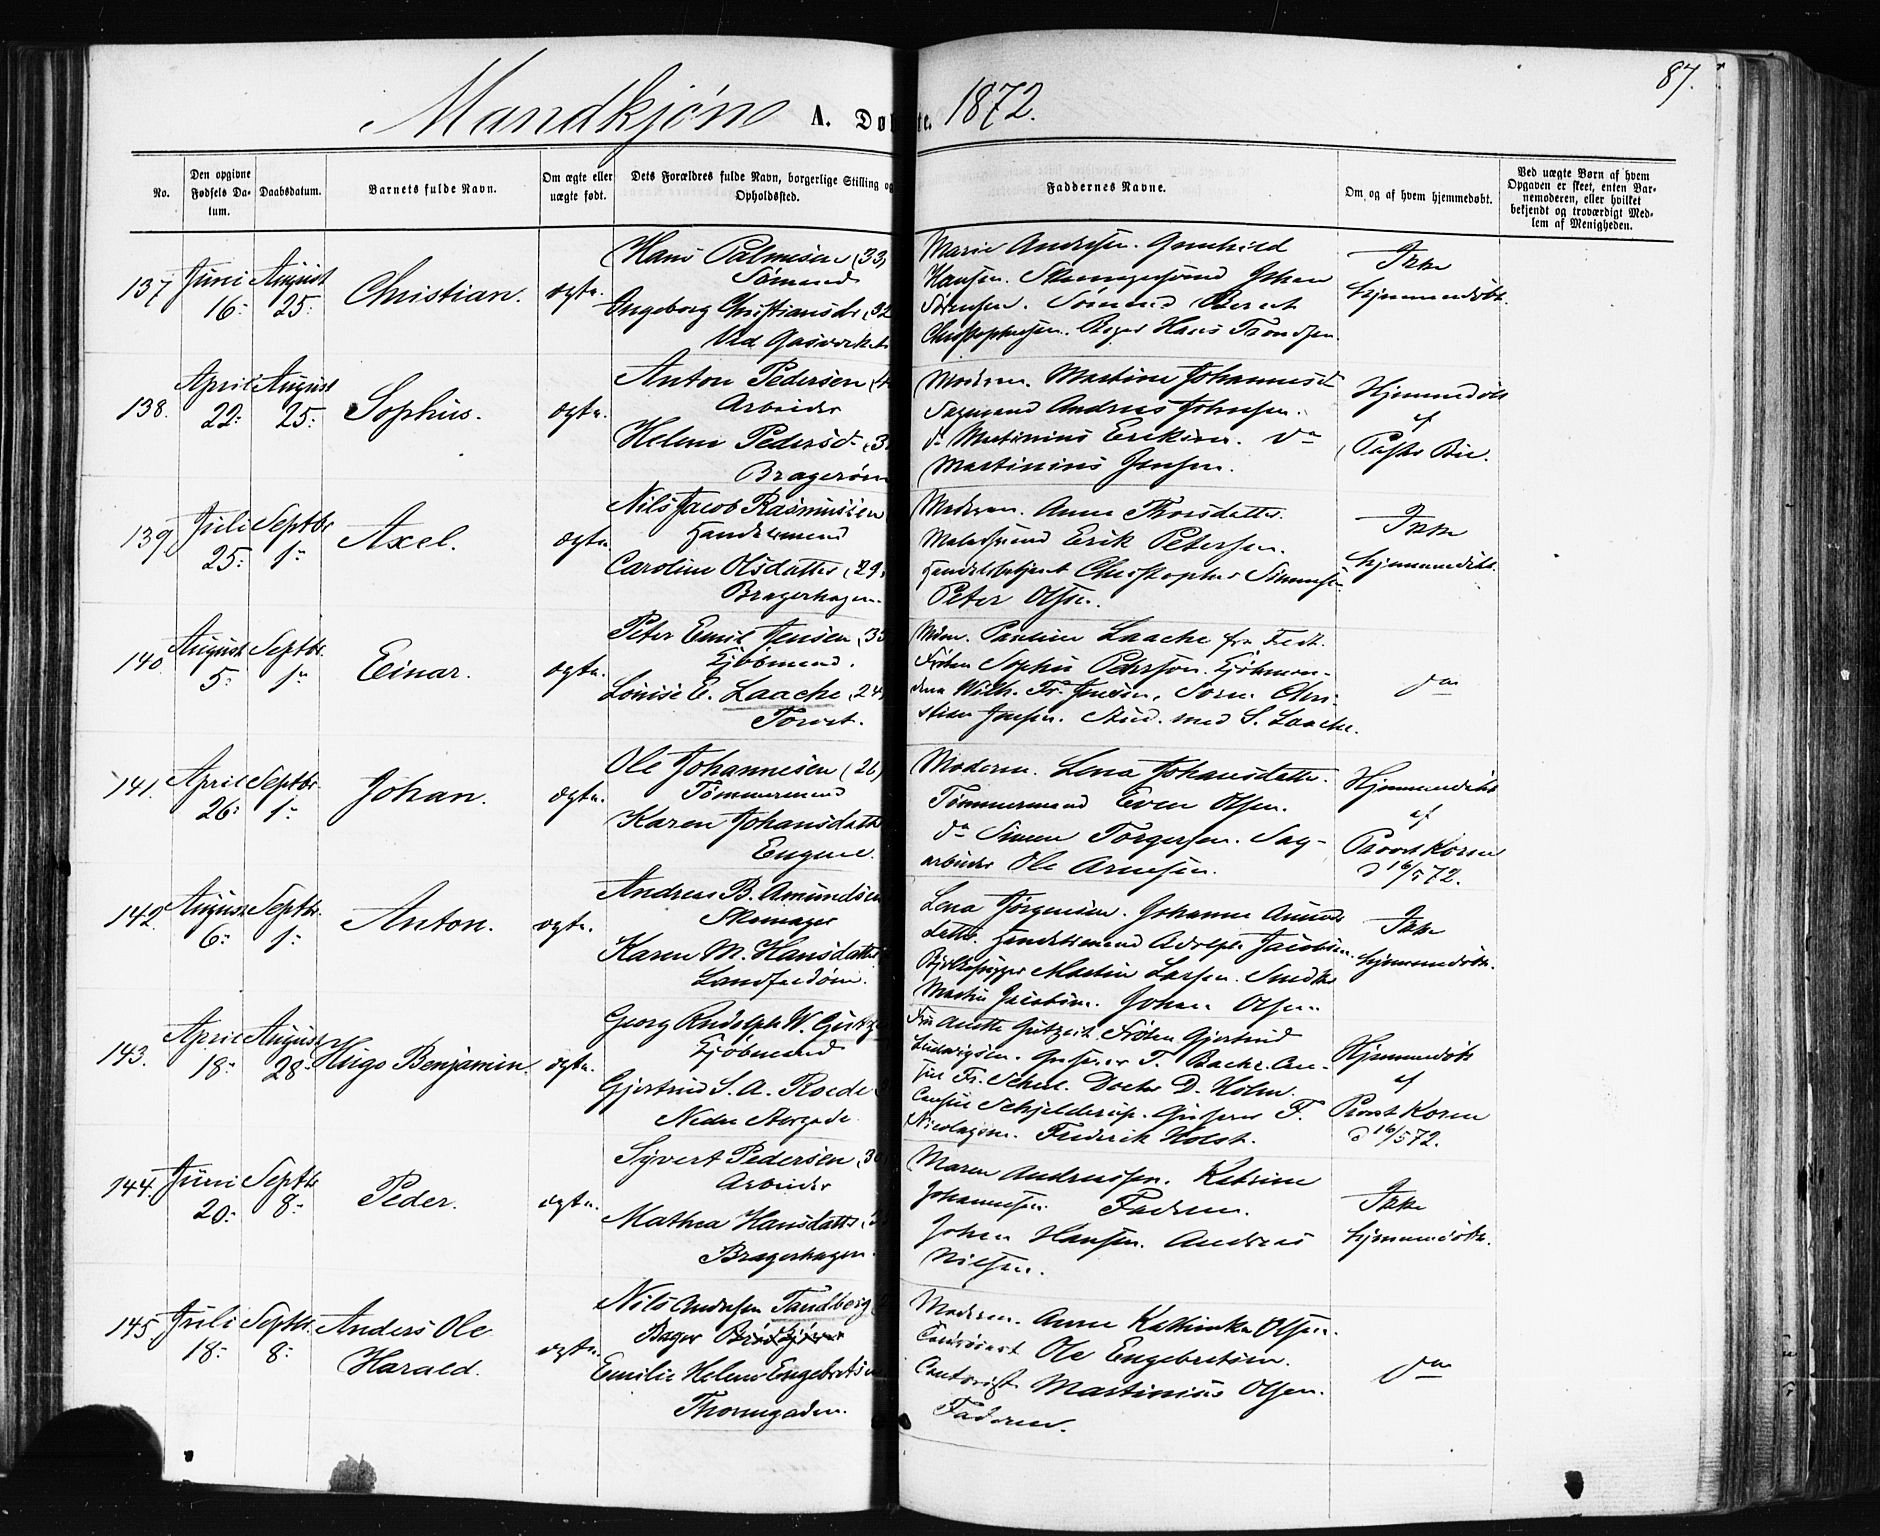 87.
Mandkjøn A. Døbte. 1872.
No.
Den opgivne Fødsels Datum.
Daabsdatum.
Barnets fulde Navn.
Om ægte eller uægte født.
Dets Forældres fulde Navn, borgerlige Stilling og Opholdssted.
Faddernes Navne.
Om og af hvem hjemmedøbt.
Ved uægte Børn af hvem Opgaven er skeet, enten Barnemoderen, eller hvilket bekjendt og troværdigt Medlem af Menigheden.
137 Juni 16: August 25: Christian. ægte.
Hans Palmesen (33)
Sømand
Ingeborg Christiansdr (32
Ved Gasverket
Marie Andersen. Gunhild
Hansen. Johan
Sørensen. Sømand Bernt
Christophersen. Bager Hans Trondsen.
Ikke
hjemmedøbt.
138. April 22: August 25: Sophus. ægte.
Anton Pedersen (4
Arbeider
Helene Pedersd. (3
Bragerøen
Moderen. Martine Johannesd.
Sagmand Andreas Johnsen.
do Martinius Eriksen. do
Martinius Jensen.
Hjemmedøbt
af
Pastor Bie.
139. Juli 25: Septbr 1: Axel. ægte.
Nils Jacob Rasmussen
Handelsmand
Caroline Olsdatter (29.
Bragerhagen.
Moderen. Anne Thorsdatter.
Erik Petersen.
Handelsbetjent Christopher Simensen.
Peter Olsen.
Ikke
hjemmedøbt.
140 August 5: Septbr. 1: Einar. ægte.
Peter Emil Jensen (33
Kjøbmand.
Louise E. Laache (24
Torvet.
Mdm. Pauline Laache fra Fedt.
Frøken Sophie Pehrson. Kjøbmæn-
dene Wilh. Fr. Jensen, Sørn. Chri-
stian Jensen. Stud. med S. Laache.
do
141. April 26: Septbr. 1: Johan. ægte.
Ole Johannesen (26)
Tømmermand
Karen Johansdatter
Engene.
Moderen. Lena Johansdatter.
Tømmermand Even Olsen.
do Simen Torgersen. Sag-
arbeider Ole Arnesen.
Hjemmedøbt
af
Provst Koren
d 16/5 72.
142. August 6: Septbr. 1: Anton. ægte.
Andreas B. Amundsen
Skomager
Karen M. Hansdatter
Landfaldøen.
Lena Jørgensen. Johanne Amunds
datter. Handelsmand Adolph Jacobsen.
Martin Larsen. Snedker
Martin Jacobsen. Johan Olsen
Ikke
hjemmedøbt.
143. April 18: August 28: Hugo Benjamin. ægte.
Georg Rudolph W. Gutzeit
Kjøbmand
Gjertrud S. A. Roede
Nedre Storgade.
Fru Anette Gutzeit. Frøken Gjertrud
Ludvigsen. Grosserer T. Bache. Con-
sul Fr. Schel. Doctor D. Holm.
Consul Schjelderup. Grosserer F.
Nicolaysen. Frederik Holst.
Hjemmedøbt
af
Provst Koren
d 16/5 72.
144. Juni 20: Septbr 8: Peder. ægte.
Syvert Pedersen (30
Arbeider
Mathea Hansdatter
Bragerhagen.
Maren Andreassen. Katrine
Johannesen. Faderen.
Johan Hansen. Andreas
Nilsen.
Ikke
hjemmedøbt.
145. Juli 18: Septbr. 8: Anders Ole
Harald. ægte.
Nils Andersen Tandberg
Bager
Emilie Helene Engebretsen
Thornegaden.
Moderen. Anne Kathinka Olsen.
Ole Engebretsen.
Contorist Martinius Olsen.
Faderen.
do